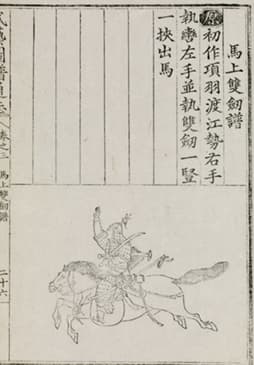 馬上雙劍譜
原初作項羽渡江勢右手
執轡左手並執雙劍一竪
一挾出馬
武藝圖譜通志
卷之三
馬上雙劍譜
二十六